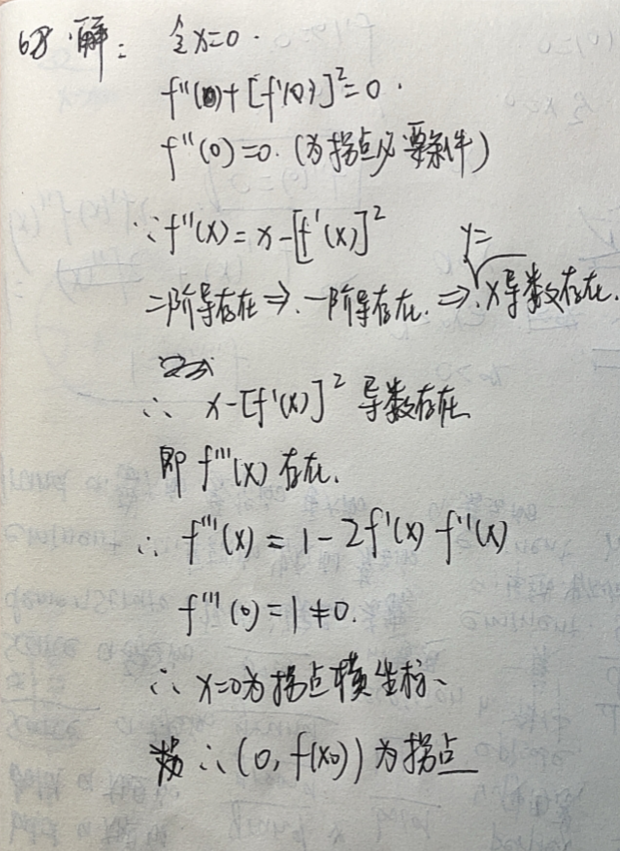 68 解： 令x=0.
f''(0)+[f'(0)]²=0.
f''(0)=0. (为拐点必要条件)
∵ f''(x)=x-[f'(x)]²
y=
二阶导存在⇒.一阶导存在.⇒.x导数存在.
∴ x-[f'(x)]² 导数存在
即 f'''(x) 存在.
∴ f'''(x)=1-2f'(x) f''(x)
f'''(0)=1≠0.
∴ x=0为拐点横坐标、
∴(0, f(x0))为拐点